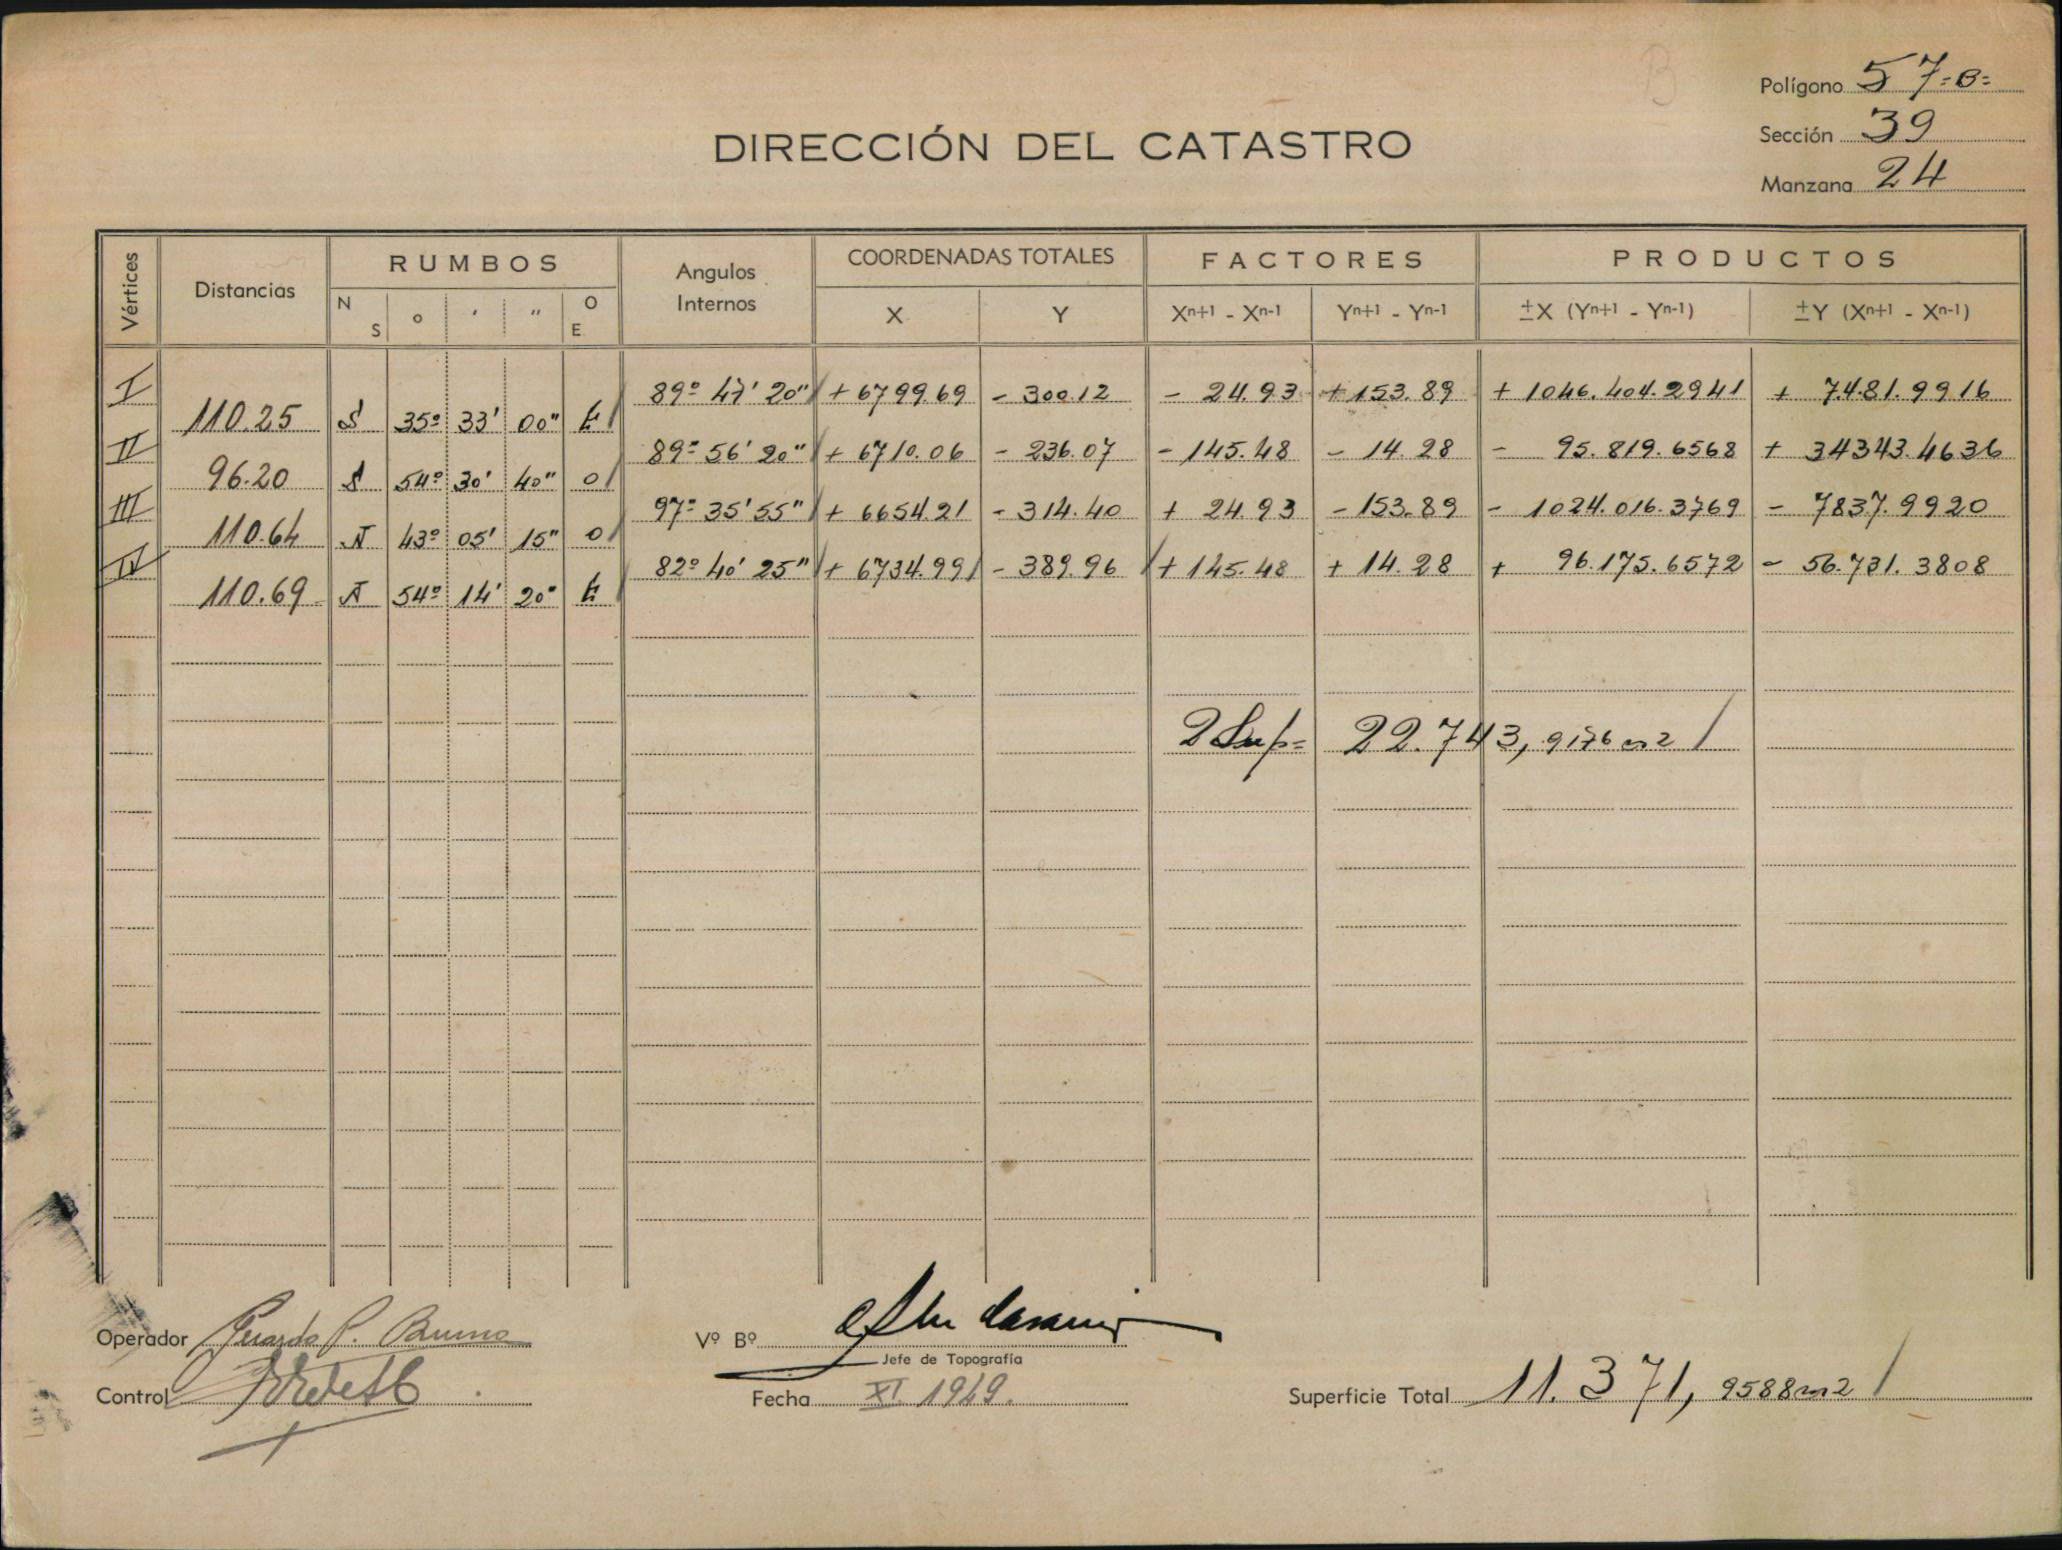 B
Polígono 57=B=
Sección 39
Manzana 24
DIRECCIÓN DEL CATASTRO
Vértices Distancias RUMBOS Angulos Internos COORDENADAS TOTALES FACTORES PRODUCTOS
N S ° ' " O E X Y Xn+1 - Xn-1 Yn+1 - Yn-1 ±X (Yn+1 - Yn-1) ±Y (Xn+1 - Xn-1)
I 89º 47' 20" + 6799.69 - 300.12 - 24.93 + 153.89 + 1046.404.2941 + 7.481.9916
110.25 S 35º 33' 00" E
II 89º 56' 20" + 6710.06 - 236.07 - 145.48 - 14.28 - 95.819.6568 + 34343.4636
96.20 S 54º 30' 40" O
III 97º 35' 55" + 6654.21 - 314.40 + 24.93 - 153.89 - 1024.016.3769 - 7837.9920
110.64 N 43º 05' 15" O
IV 82º 40' 25" + 6734.99 - 389.96 + 145.48 + 14.28 + 96.175.6572 - 56.731.3808
110.69 N 54º 14' 20" E
2 Sup= 22.743, 9176 m2
Operador Gerardo P. Bruno
Vº Bº
Jefe de Topografía
Control
Fecha XI. 1949.
Superficie Total 11.371, 9588 m2